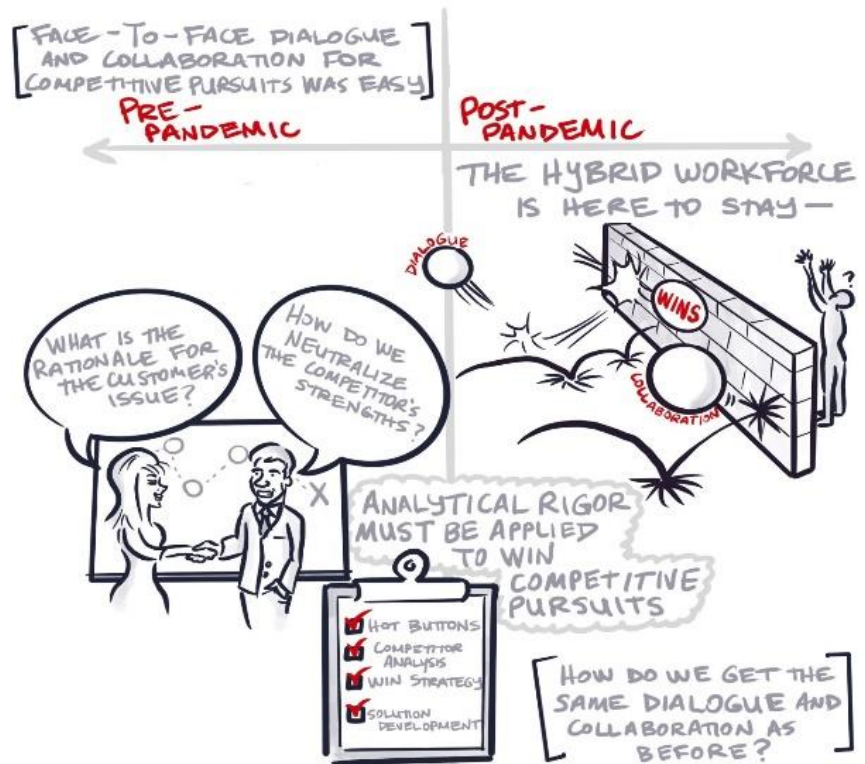 FACE-TO-FACE DIALOGUE
AND COLLABORATION FOR
COMPETITIVE PURSUITS WAS EASY
PRE-
PANDEMIC
POST-
PANDEMIC
THE HYBRID WORKFORCE
IS HERE TO STAY—
DIALOGUE
WINS
COLLABORATION
?
WHAT IS THE
RATIONALE FOR
THE CUSTOMER'S
ISSUE?
HOW DO WE
NEUTRALIZE
THE COMPETITOR'S
STRENGTHS?
X
ANALYTICAL RIGOR
MUST BE APPLIED
TO WIN
COMPETITIVE
PURSUITS
HOT BUTTONS
COMPETITOR
ANALYSIS
WIN STRATEGY
SOLUTION
DEVELOPMENT
HOW DO WE GET THE
SAME DIALOGUE AND
COLLABORATION AS
BEFORE?